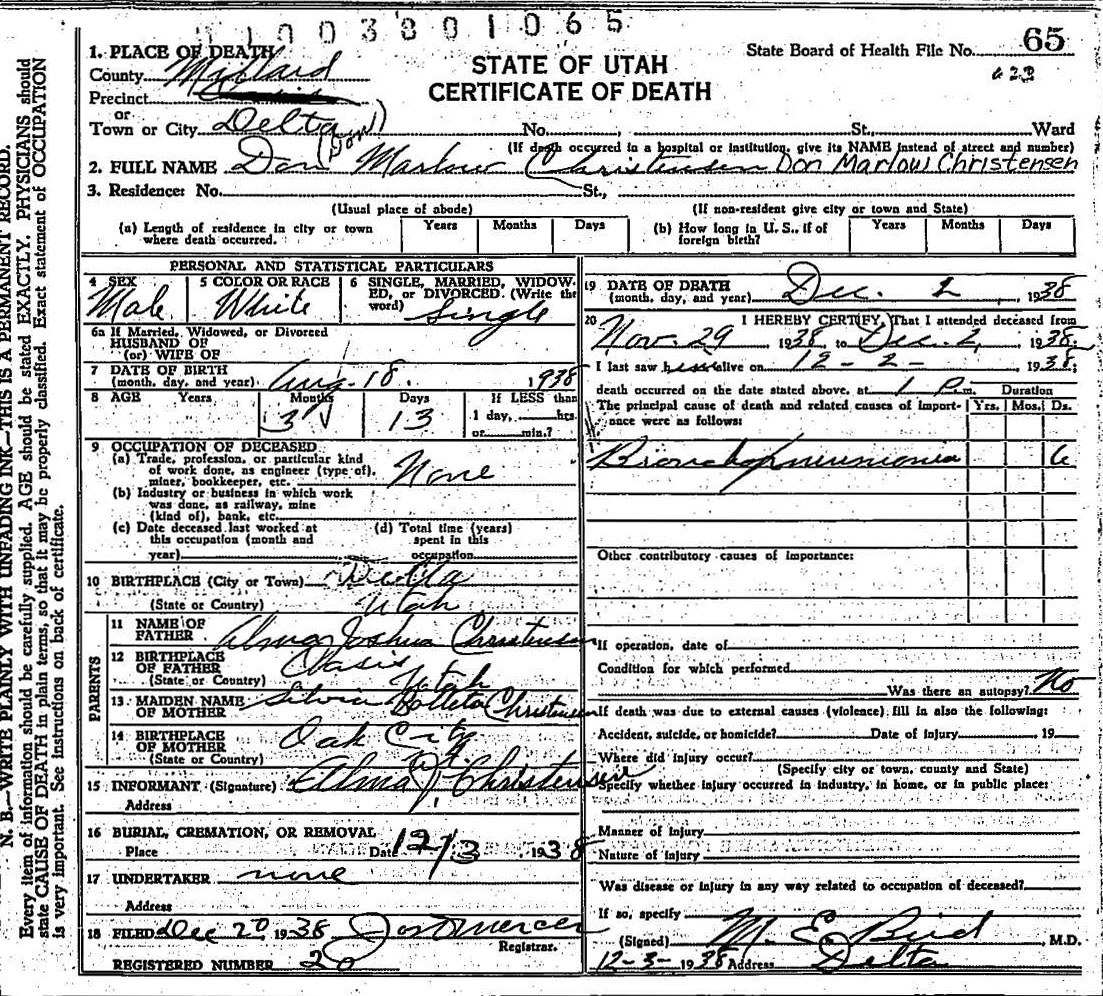 1 1 0 0 3 8 0 1 0 6 5
State Board of Health File No. 65
STATE OF UTAH
CERTIFICATE OF DEATH
1. PLACE OF DEATH
County Millard
Precinct
or
Town or City Delta No. , St., Ward
(If death occurred in a hospital or institution, give its NAME instead of street and number)
(Don)
2. FULL NAME Dan Marlow Christensen Don Marlow Christensen
3. Residence: No. St.,
(Usual place of abode) (If non-resident give city or town and State)
(a) Length of residence in city or town where death occurred. Years Months Days
(b) How long in U. S., if of foreign birth? Years Months Days
PERSONAL AND STATISTICAL PARTICULARS
4 SEX Male
5 COLOR OR RACE White
6 SINGLE, MARRIED, WIDOWED, or DIVORCED. (Write the word) Single
6a If Married, Widowed, or Divorced
HUSBAND OF
(or) WIFE OF
7 DATE OF BIRTH
(month, day, and year) Aug. 18. 1938
8 AGE Years Months Days If LESS than
3 13 1 day, hrs.
or min.?
9 OCCUPATION OF DECEASED
(a) Trade, profession, or particular kind
of work done, as engineer (type of),
miner, bookkeeper, etc. None
(b) Industry or business in which work
was done, as railway, mine
(kind of), bank, etc.
(c) Date deceased last worked at
this occupation (month and
year)
(d) Total time (years)
spent in this
occupation
10 BIRTHPLACE (City or Town) Delta
(State or Country) Utah
PARENTS
11 NAME OF
FATHER Alma Joshua Christensen
12 BIRTHPLACE
OF FATHER Oasis
(State or Country) Utah
13 MAIDEN NAME
OF MOTHER Silvia Christensen
14 BIRTHPLACE
OF MOTHER Oak City
(State or Country) Ut.
15 INFORMANT (Signature) Alma J. Christensen
Address
16 BURIAL, CREMATION, OR REMOVAL
Place Date 12/3 1938
17 UNDERTAKER none
Address
18 FILED Dec 20, 1938
Registrar.
REGISTERED NUMBER 20
19 DATE OF DEATH
(month, day, and year) Dec. 2, 1938
20 I HEREBY CERTIFY, That I attended deceased from
Nov. 29 1938, to Dec. 2, 1938.
I last saw h alive on 12-2- 1938;
death occurred on the date stated above, at 1 P. m. Duration
The principal cause of death and related causes of importance were as follows: Yrs. Mos. Ds.
Bronchopneumonia 6
Other contributory causes of importance:
If operation, date of
Condition for which performed
Was there an autopsy? No
If death was due to external causes (violence) fill in also the following:
Accident, suicide, or homicide? Date of injury 19
Where did injury occur?
(Specify city or town, county and State)
Specify whether injury occurred in industry, in home, or in public place:
Manner of injury
Nature of injury
Was disease or injury in any way related to occupation of deceased?
If so, specify
(Signed) M. E. Bird, M.D.
12-3-1938 Address Delta
N. B.—WRITE PLAINLY WITH UNFADING INK—THIS IS A PERMANENT RECORD.
Every item of information should be carefully supplied. AGE should be stated EXACTLY. PHYSICIANS should
state CAUSE OF DEATH in plain terms, so that it may be properly classified. Exact statement of OCCUPATION
is very important. See instructions on back of certificate.